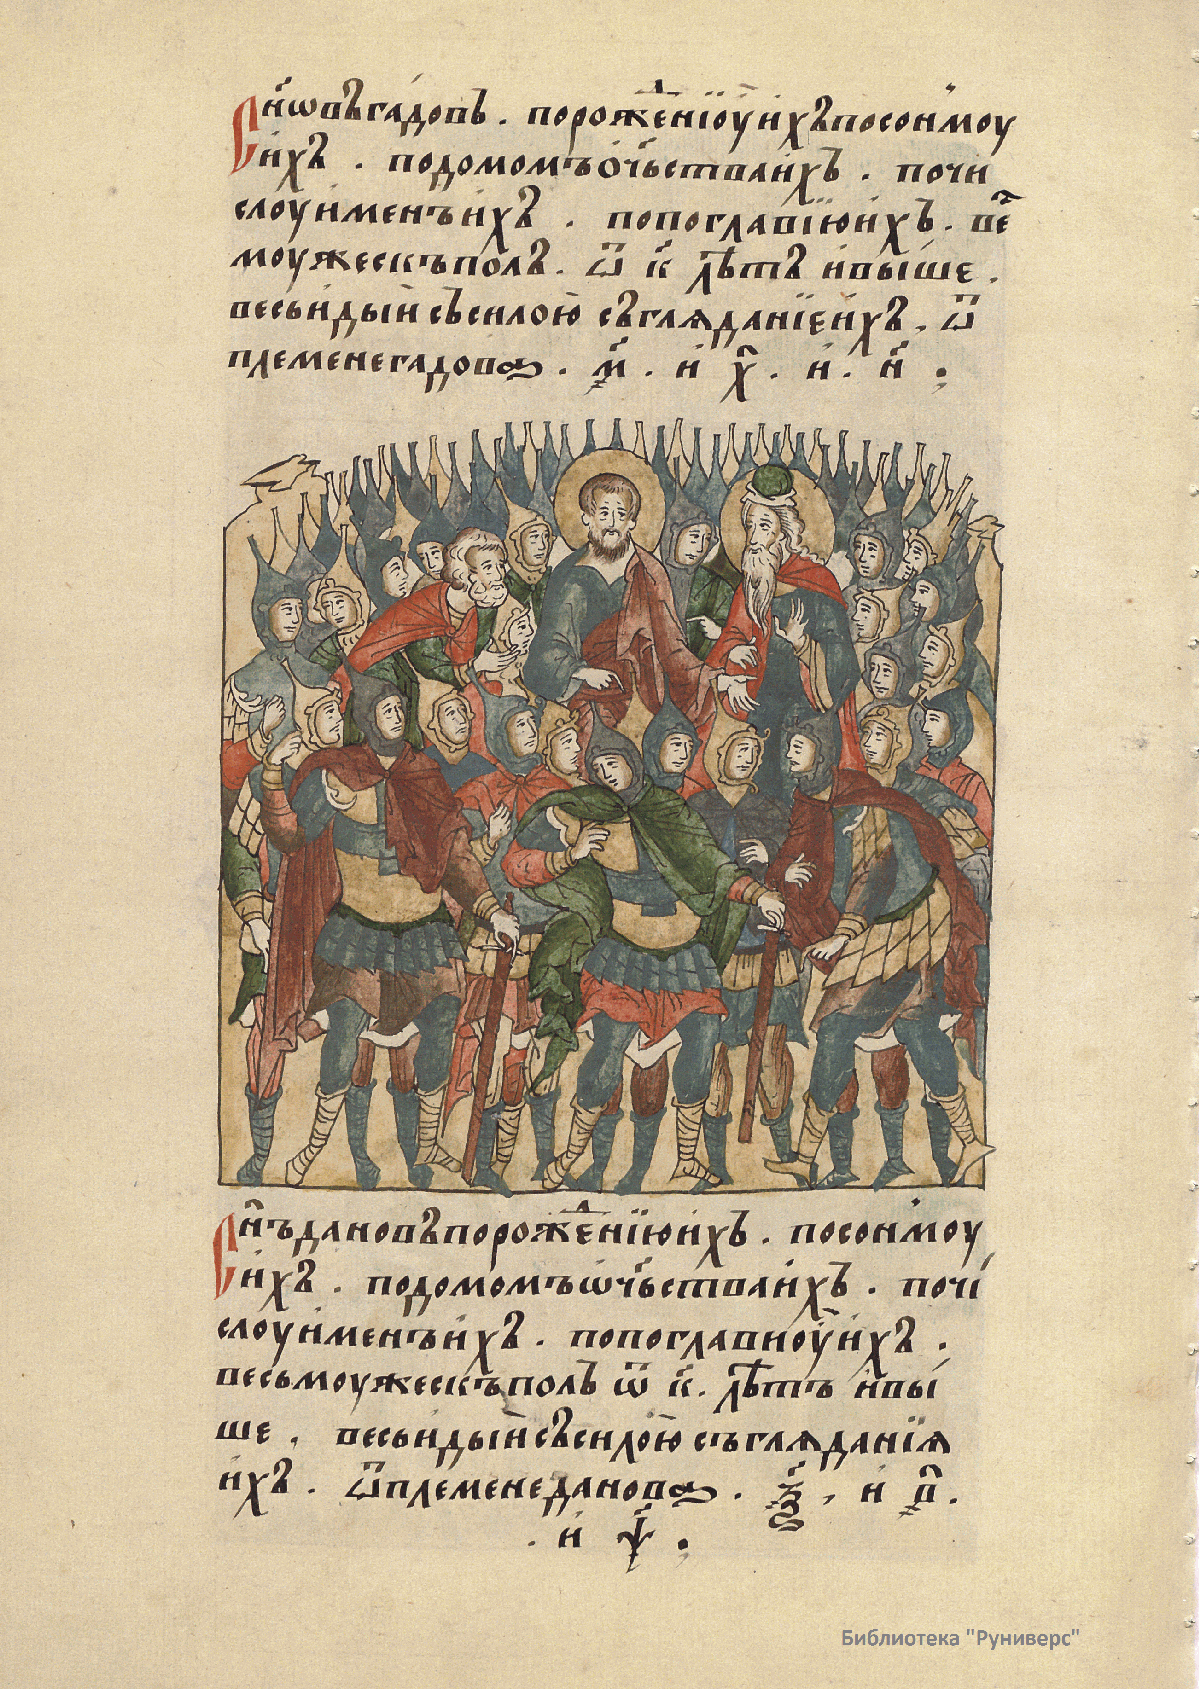 Сн҃овъ гадовъ . порожⷣенїоу и́хъ посонмоу
и́хъ . подомомъ ѻч҃ьства и́хъ . почи
слоу и́менъ и́хъ . попоглавїю и́хъ . веⷭ
моужескъ полъ . ѿ к҃ лѣ́тъ и҆ вы́ше .
весь и́дый съ силою съглѧданїе и́хъ , ѿ
племене гадова . м҃ . и х҃ . и . н҃ ;
Сн҃ъ дановъ порожⷣенїю и́хъ . посонмоу
и́хъ . подомомъ ѡч҃ьства и́хъ . почі
слоу и́менъ и́хъ . попоглавиоу и́хъ .
весь моужескъ полъ ѿ к҃ . лѣ́тъ и҆ вы́
ше , весь и́дый съ силою съглѧданїѧ
и́хъ . ѿ племене данова . ѯ҃ , и в҃ .
. и ѱ҃ ;
Библиотека "Руниверс"